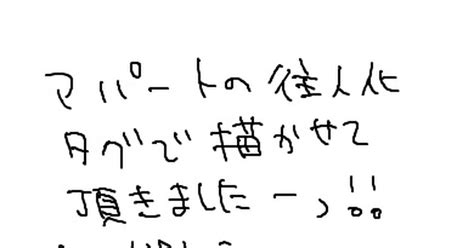 アパートの住人化
タグで描かせて
頂きましたーっ!!